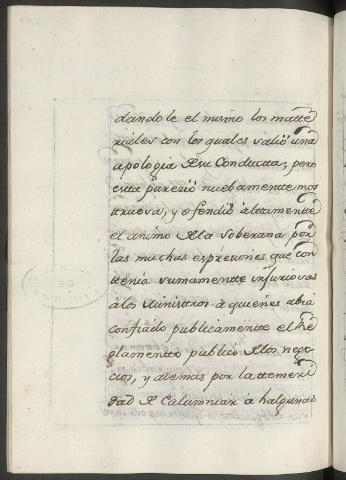 dandole el mismo los matte
riales con los quales saliò una
apologia de su Conductta; pero
esta pareciò nuebamentte mos
truosa, y ofendiò alttamentte
el animo de la Soberana por
las muchas espresiones, que con
ttenia sumamentte injuriosas
à los Ministros à quienes abia
confiado publicamentte el Re
glamentto publico de los nego-
cios, y además por la ttemeri
dad de Calumniar à halgunas